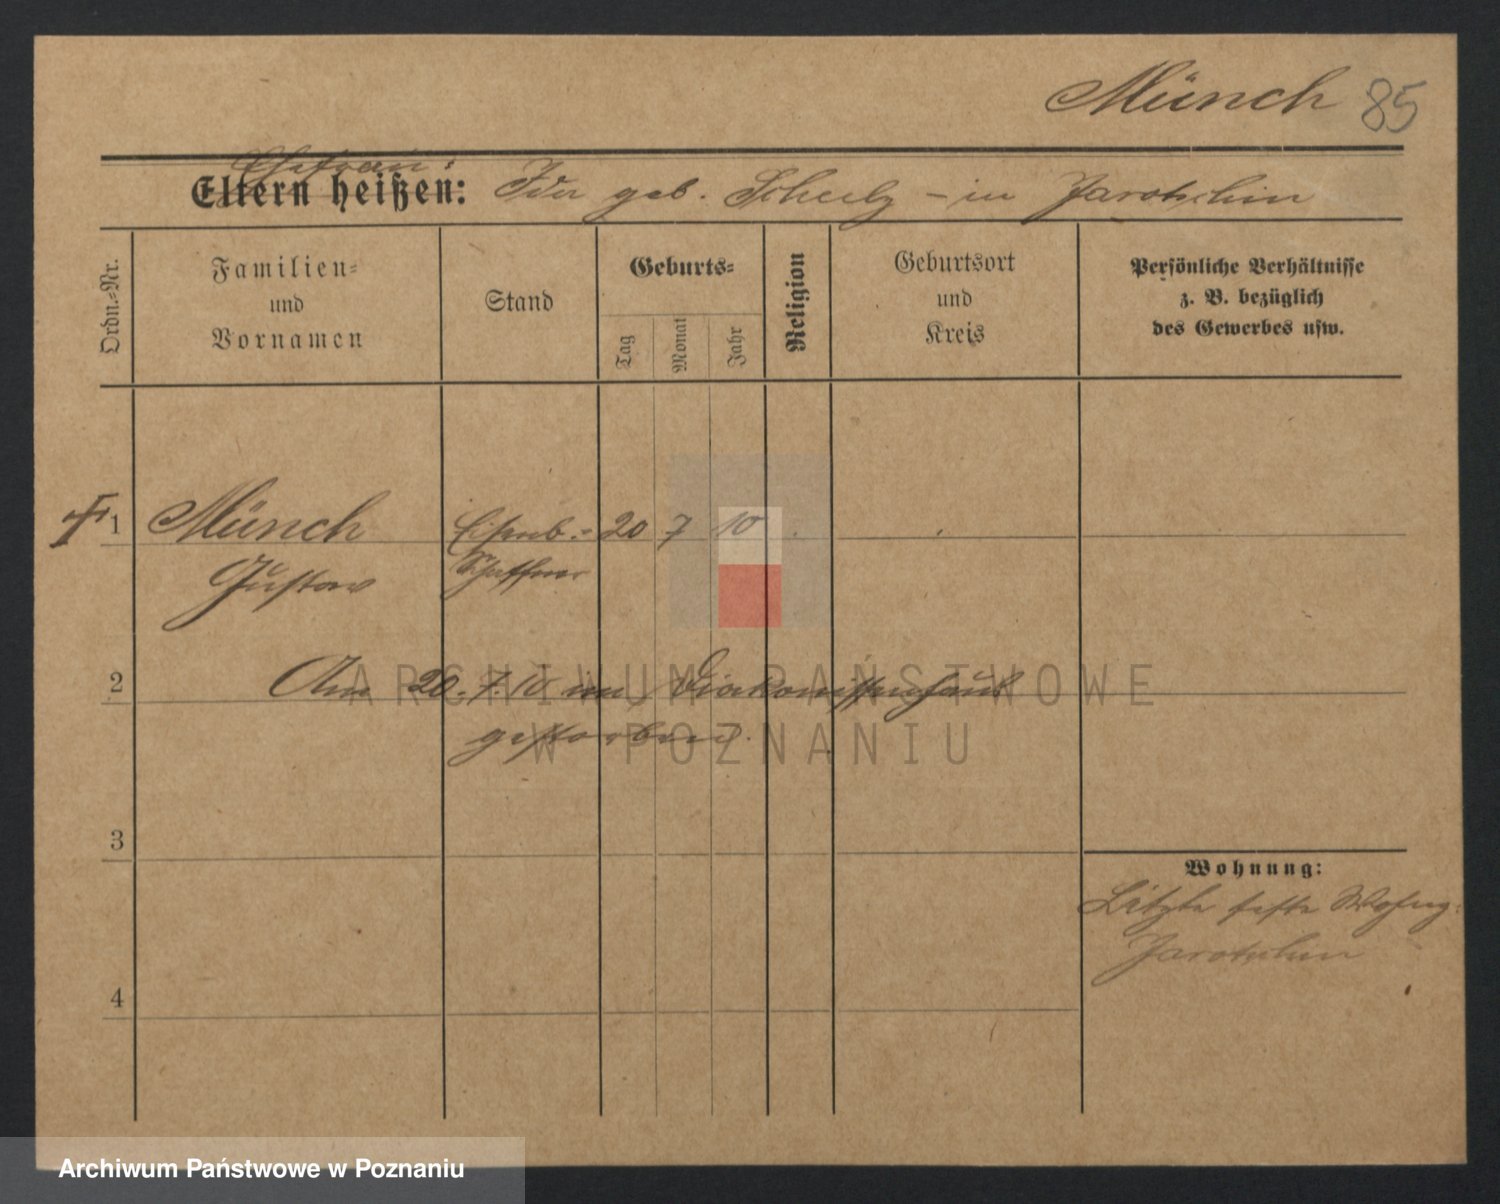 Münch 85
Ehefrau:
Eltern heißen: Ida geb. Scheelz – in Jarotschin
Ordn.-Nr.
Familien-
und
Vornamen
Stand
Geburts-
Tag
Monat
Jahr
Religion
Geburtsort
und
Kreis
Persönliche Verhältnisse
z. B. bezüglich
des Gewerbes usw.
1 Münch Eisenb.- 20 7 10
Gustav Schaffner
2 Am 20. 7. 10 im Diakonissenhaus
gestorben.
3
Wohnung:
Letzte feste Wohng:
Jarotschin
4
ARCHIWUM PAŃSTWOWE
W POZNANIU
Archiwum Państwowe w Poznaniu